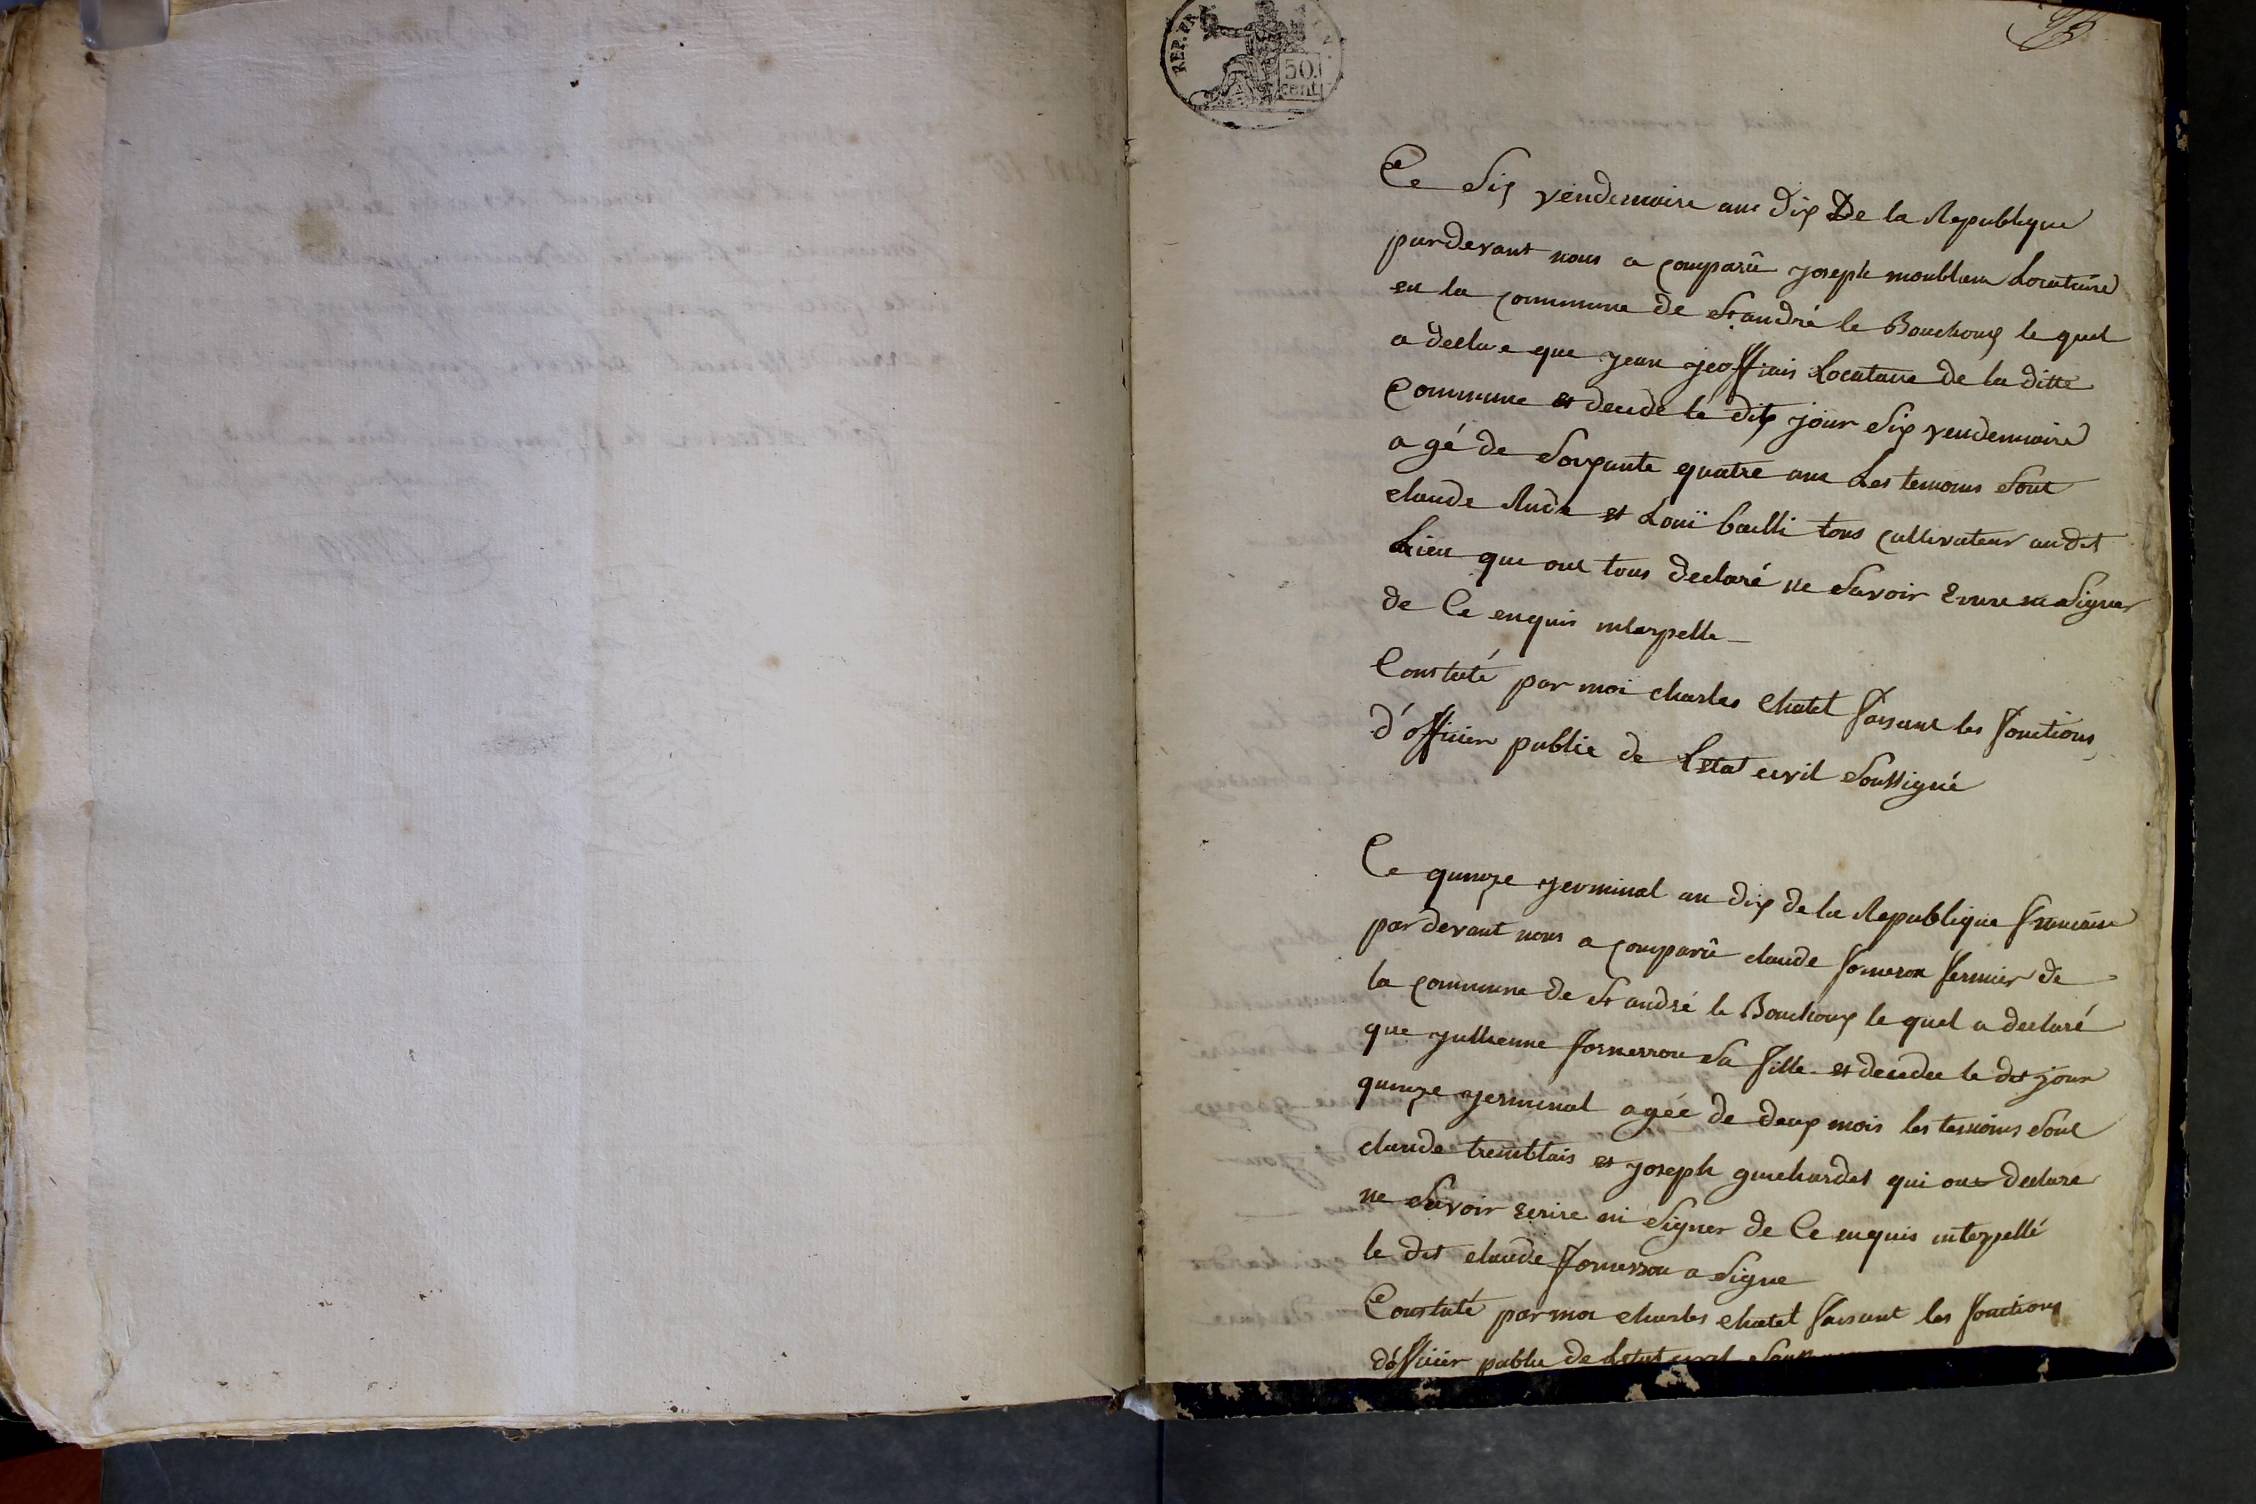 REP. FRA
50.
cent.
Ce Six vendemaire ane Dix De la Republique
pardevant nous a comparû joseph moublan Locataire
en la commune de St andré le Bouchoux le quel
a declare que jean jeoffrais Locataire de la ditte
Commune et decedé le dit jour Six vendemaire
agé de Soixante quatre ans Les temoins Sont
claude Rude et Louï bailli tous cultivateur au dit
Lieu que ont tous declaré ne Savoir Ecrire ni Signer
de Ce enquis interpelle
Constaté par moi charles Chatel faisant les fonctions
d'officier public de Letat civil Soussigné
Ce quinze germinal an dix de la Republique francaise
par devant nous a comparû claude forneron fermier de
la commune de St andré le Bouchoux le quel a declaré
que jullienne fornerron Sa fille et decedee le dit jour
quinze germinal agée de deux mois les temoins Sont
claude tremblais et joseph guichardet qui ont declare
ne Savoir Ecrire ni Signer de Ce enquis interpellé
le dit claude fornerron a Signe
Constaté par moi charles chatel faisant les fonctions
d'officier public de Letat civil